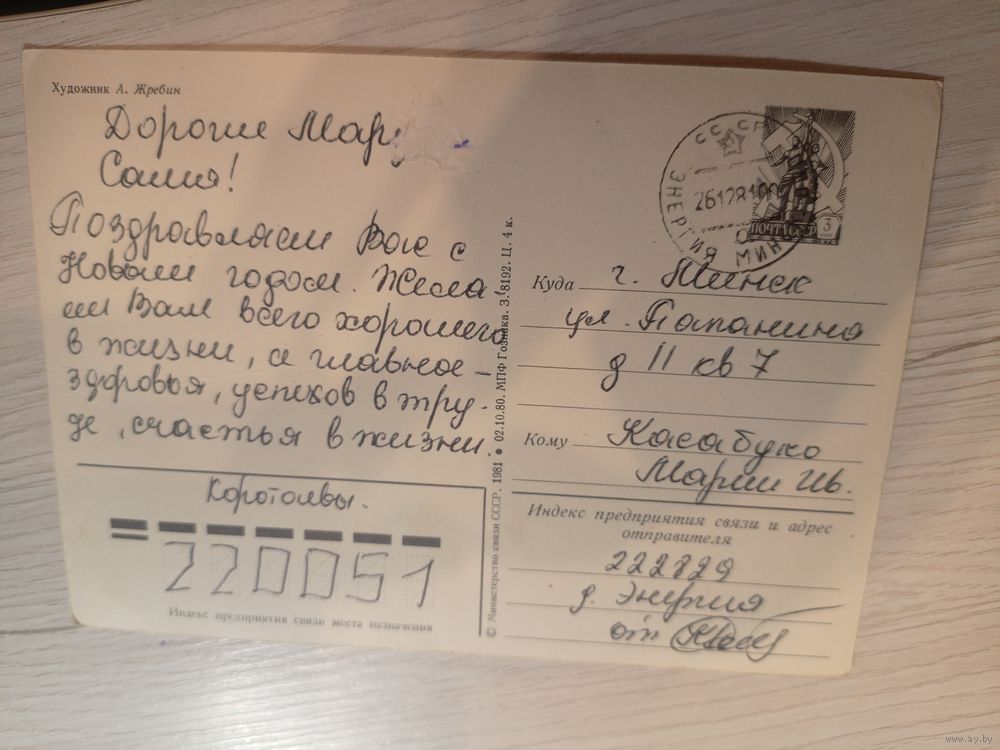 Художник А. Жребин
Дорогие Мару
Саша!
Поздравляем Вас с
Новым годом. Жела
ем Вам всего хорошего
в жизни, а главное -
здоровья, успехов в тру-
де, счастья в жизни.
Коротаевы.
220051
Индекс предприятия связи места назначения
© Министерство связи СССР. 1981 ● 02.10.80. МПФ Гознака. З. 8192. Ц. 4 к.
СССР
26128100
ЭНЕРГИЯ МИН
ПОЧТА СССР 3
1976
Куда г. Минск
ул. Папанина
д 11 кв 7
Кому Касабуко
Марии Ив.
Индекс предприятия связи и адрес
отправителя
222829
д. Энергия
от
www.ay.by